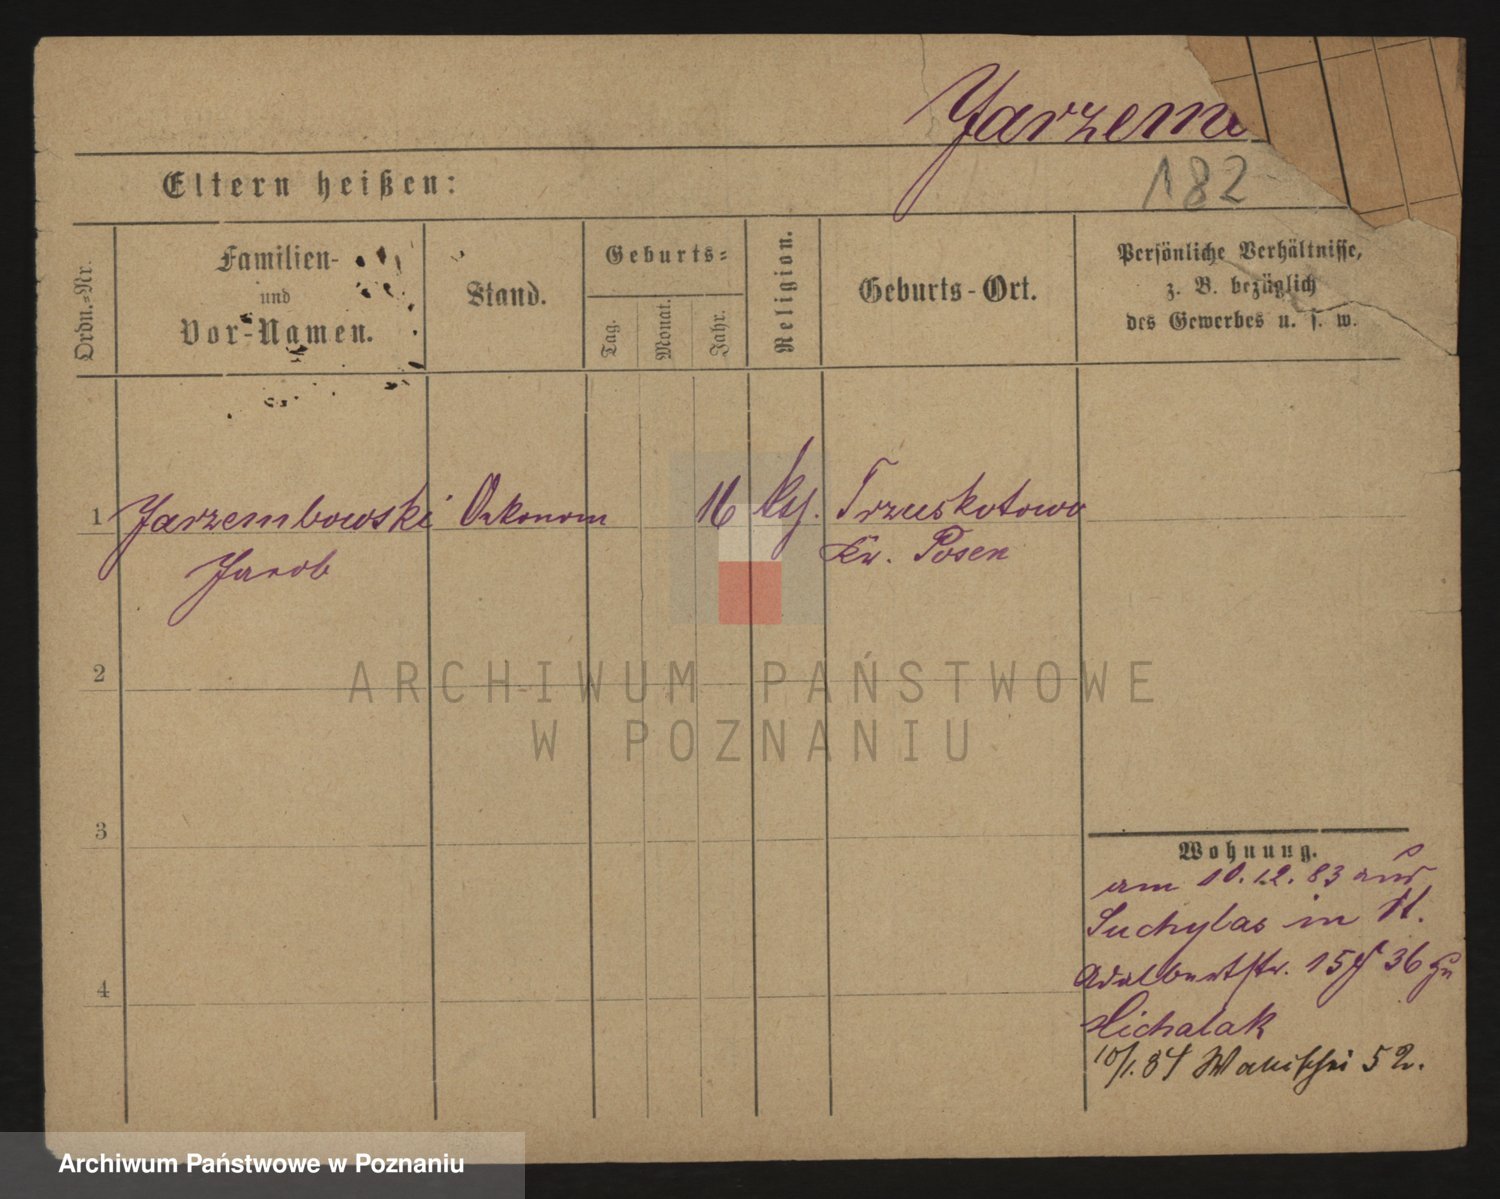 Jarzem
182
Eltern heißen:
Ordn.=Nr.
Familien-
und
Vor-Namen.
Stand.
Geburts=
Tag.
Monat.
Jahr.
Religion.
Geburts-Ort.
Persönliche Verhältnisse,
z. B. bezüglich
des Gewerbes u. s. w.
1 Jarzembowski Oekonom 16 Trzuskotowo
Jacob Kr. Posen
2
ARCHIWUM PAŃSTWOWE
W POZNANIU
3
Wohnung.
am 10.12.83 aus
Suchylas in
Adalbertstr. 15 36 zu
Michalak
10/1.84 Walischei 52.
4
Archiwum Państwowe w Poznaniu